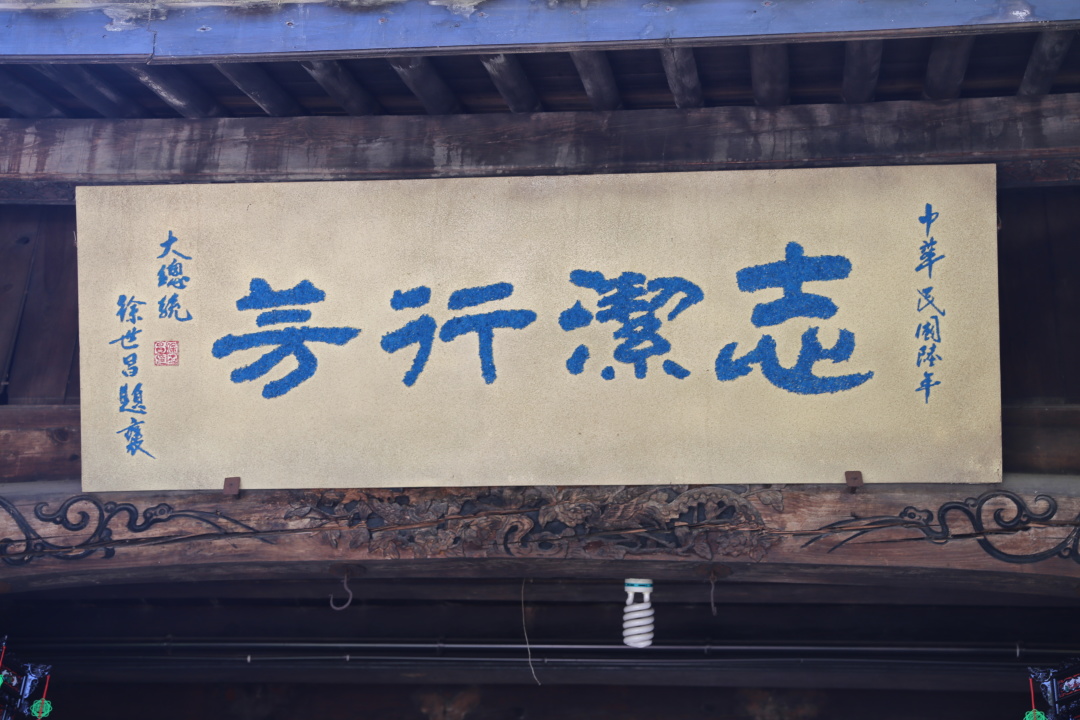 中華民國陸年
志潔行芳
大總統
徐世昌題褒